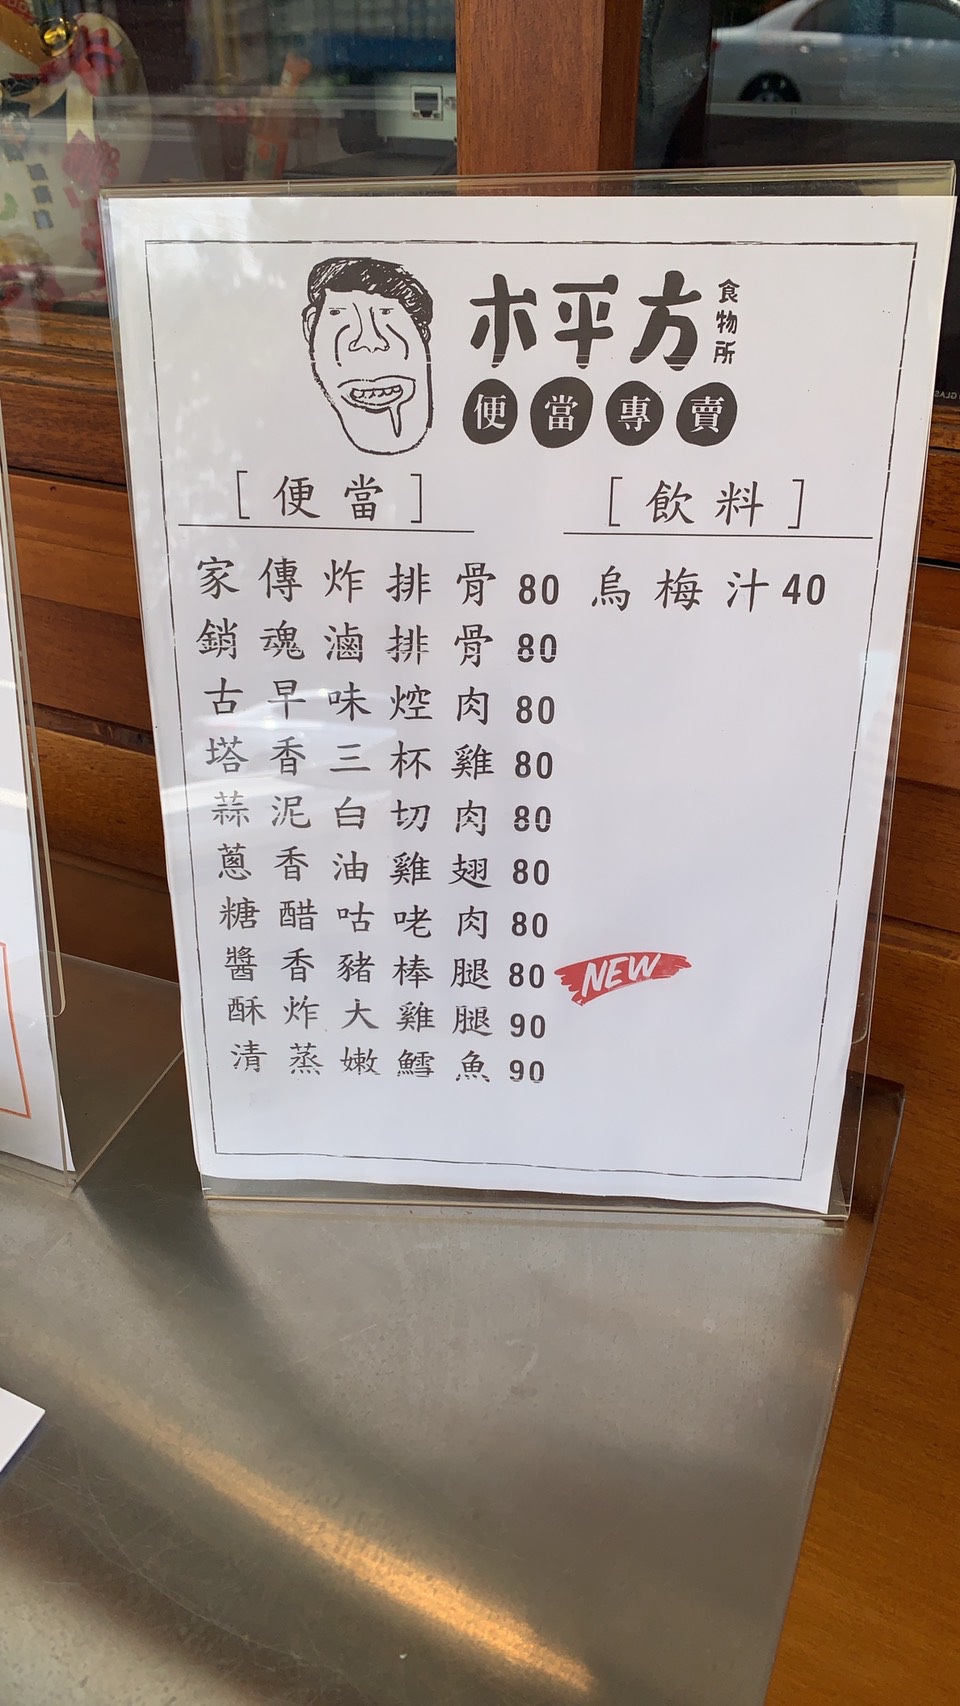 木平方
食物所
便當專賣
[便當]
家傳炸排骨 80
銷魂滷排骨 80
古早味焢肉 80
塔香三杯雞 80
蒜泥白切肉 80
蔥香油雞翅 80
糖醋咕咾肉 80
醬香豬棒腿 80 NEW
酥炸大雞腿 90
清蒸嫩鱈魚 90
[飲料]
烏梅汁 40